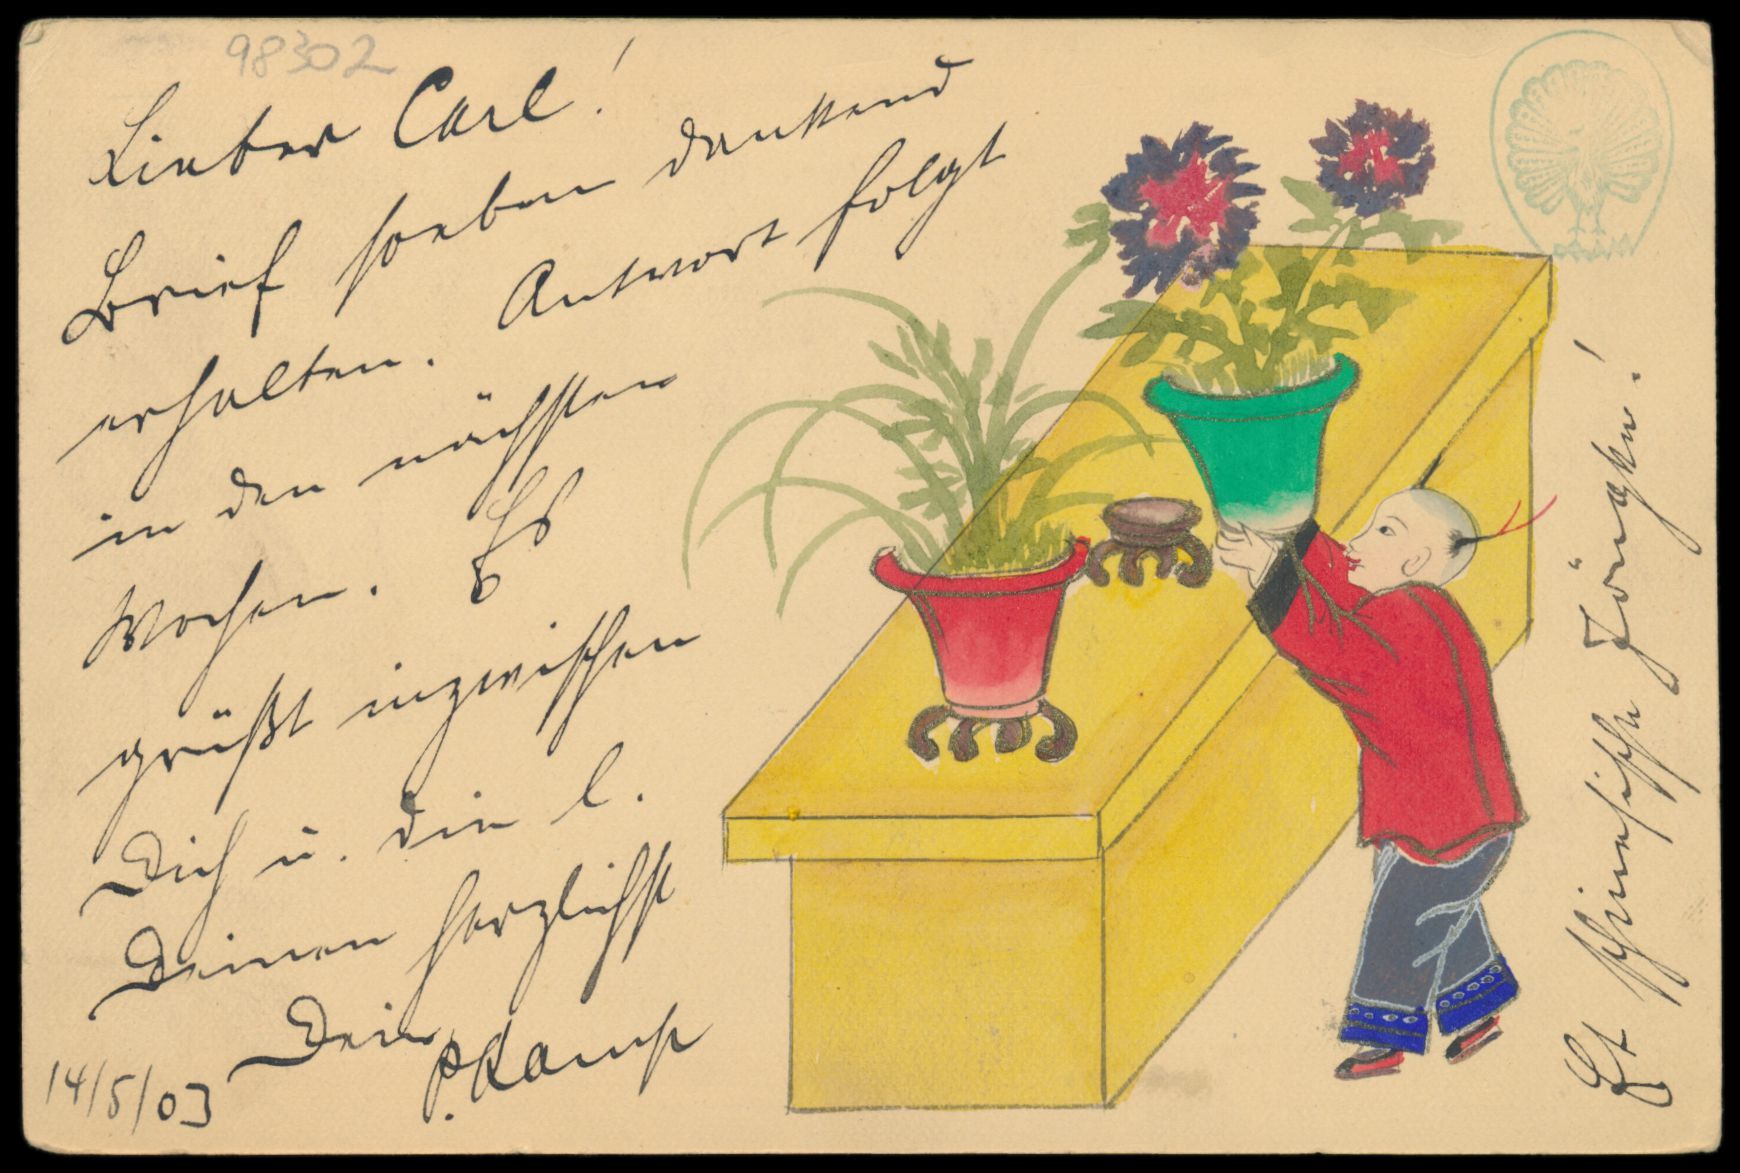 98302
Lieber Carl!
Brief soeben dankend
erhalten. Antwort folgt
in den nächsten
Wochen. Es
grüßt inzwischen
Dich u. die l.
Deinen herzlichst
Dein
P. Kamp
14/5/03
Et schinesische Jöngke!